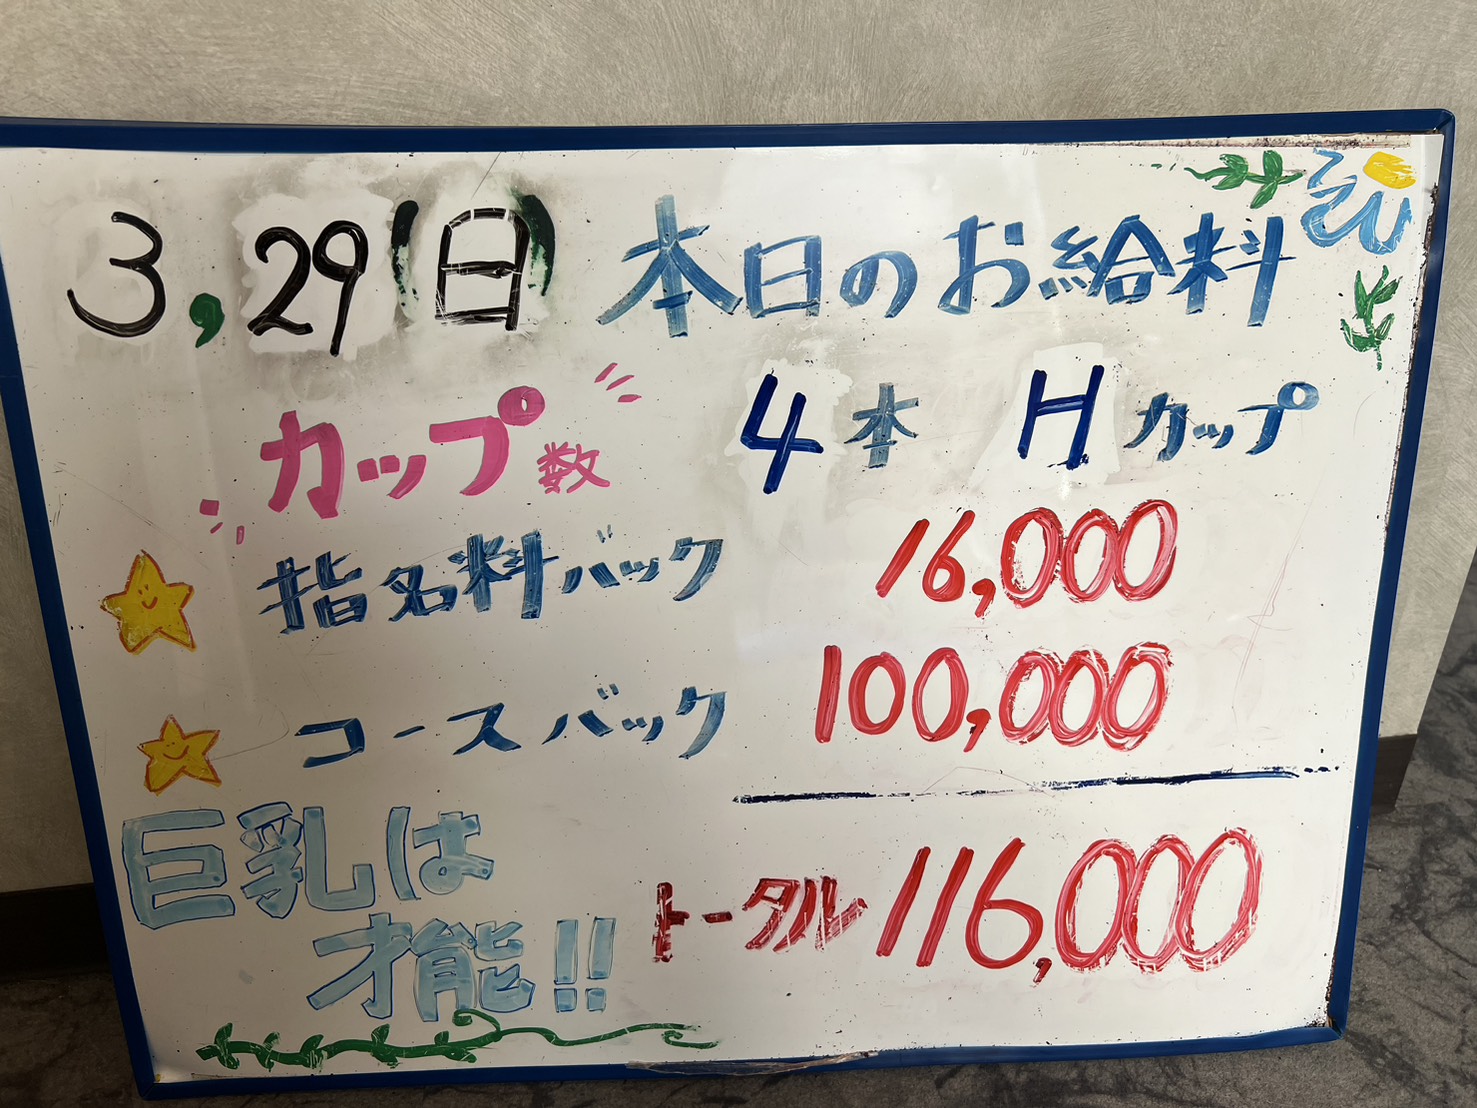 3,29(日) 本日のお給料
カップ数 4本 Hカップ
指名料バック 16,000
コースバック 100,000
巨乳は
才能!!
トータル 116,000